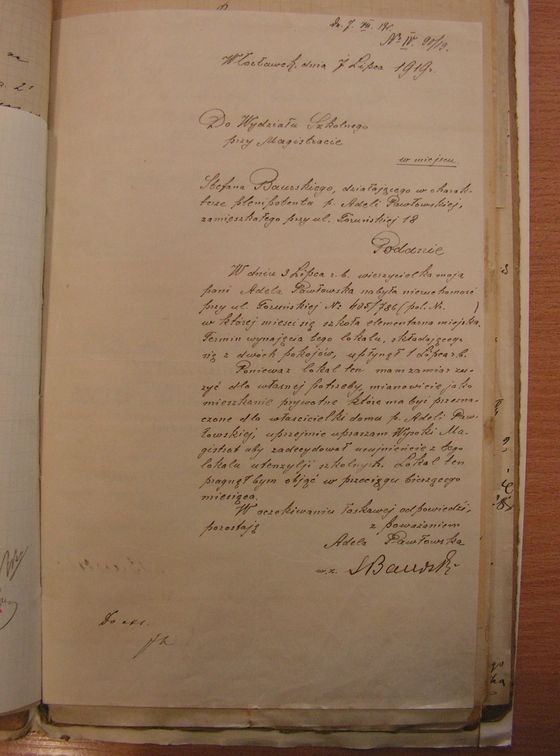 Dn. 7. VII. 19 r.
№ IV
Włocławek, dnia 7 Lipca 1919 r.
Do Wydziału Szkolnego
przy Magistracie
w miejscu.
Stefana Baurskiego, działającego w charak-
terze plenipotenta p. Adeli Pawłowskiej,
zamieszkałego przy ul. Toruńskiej 18
Podanie
W dniu 3 Lipca r.b. wierzycielka moja
pani Adela Pawłowska nabyła nieruchomość
przy ul. Toruńskiej № 695/786 (pol. №. )
w której mieści się szkoła elementarna miejska.
Termin wynajęcia tego lokalu, składającego
się z dwóch pokojów, upłynął 1 Lipca r.b.
Ponieważ lokal ten mam zamiar zu-
żyć dla własnej potrzeby, mianowicie jako
mieszkanie prywatne które ma być przezna-
czone dla właścicielki domu p. Adeli Paw-
łowskiej, uprzejmie upraszam Wysoki Ma-
gistrat aby zadecydował usunięcie z tego
lokalu utensylji szkolnych. Lokal ten
pragnąłbym objąć w przeciągu bieżącego
miesiąca.
W oczekiwaniu łaskawej odpowiedzi,
pozostaję z poważaniem
Adela Pawłowska
w. z. S Baurski
Do akt.